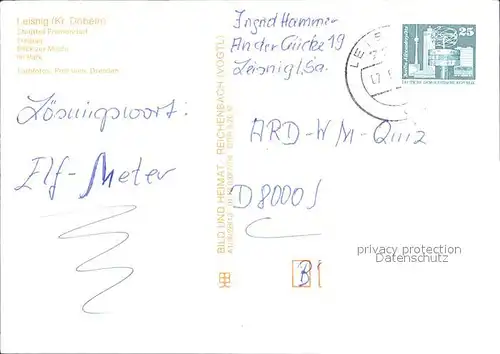 Leisnig (Kr. Döbeln)
Lösungswort:
Elf-Meter
BILD UND HEIMAT REICHENBACH (VOGTL)
Ingrid Hammer
An der Lücke 19
Leisnig/Sa.
LEIS
25
ARD-WM-Quiz
D 8000
B
privacy protection
Datenschutz